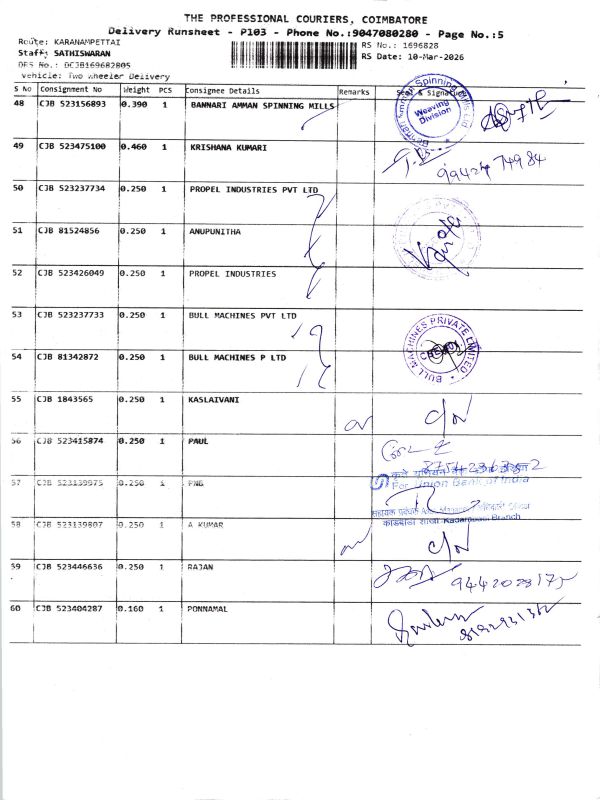 THE PROFESSIONAL COURIERS, COIMBATORE
Delivery Runsheet - P103 - Phone No.:9047080280 - Page No.:5
Route: KARANAMPETTAI
Staff: SATHISWARAN
DRS No.: DCJB169682805
Vehicle: Two Wheeler Delivery
RS No.: 1696828
RS Date: 10-Mar-2026
S No Consignment No Weight PCS Consignee Details Remarks Seal & Signature
48 CJB 523156893 0.390 1 BANNARI AMMAN SPINNING MILLS
Weaving Division
49 CJB 523475100 0.460 1 KRISHANA KUMARI
99424 74984
50 CJB 523237734 0.250 1 PROPEL INDUSTRIES PVT LTD
51 CJB 81524856 0.250 1 ANUPUNITHA
52 CJB 523426049 0.250 1 PROPEL INDUSTRIES
53 CJB 523237733 0.250 1 BULL MACHINES PVT LTD
BULL MACHINES PRIVATE LIMITED
54 CJB 81342872 0.250 1 BULL MACHINES P LTD
55 CJB 1843565 0.250 1 KASLAIVANI
C/N
56 CJB 523415874 0.250 1 PAUL
57 CJB 523139975 0.250 1 PNB
For Union Bank of India
58 CJB 523139807 0.250 1 A KUMAR
शाखा Kadampadi Branch
C/N
59 CJB 523446636 0.250 1 RAJAN
9442028175
60 CJB 523404287 0.160 1 PONNAMAL